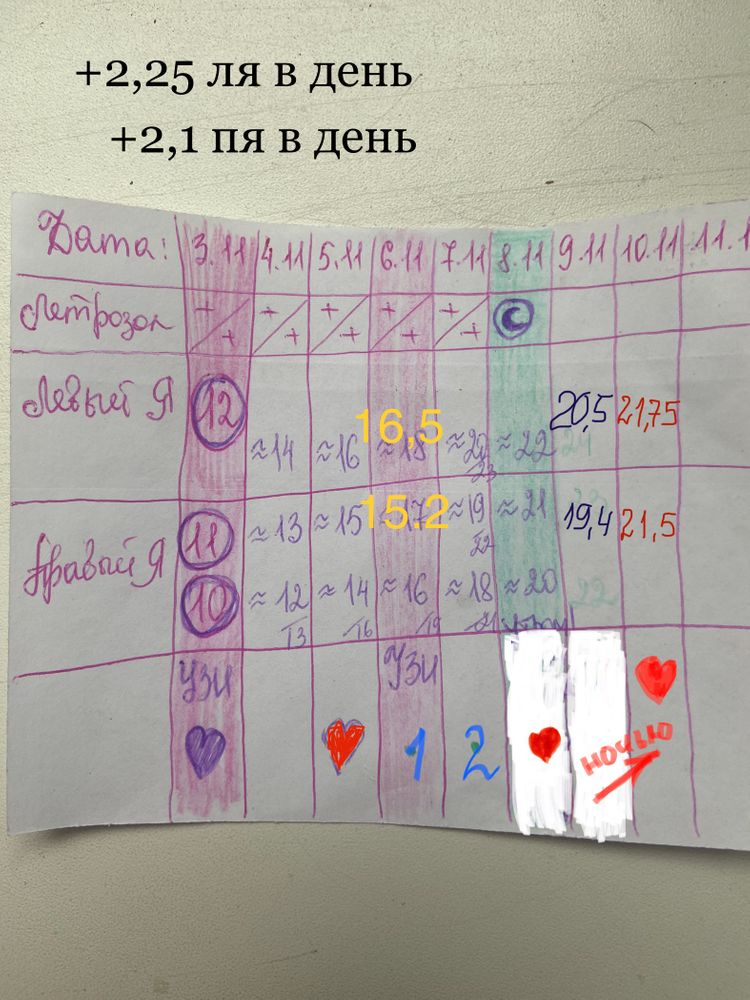 +2,25 ля в день
+2,1 пя в день
Дата: 3.11 4.11 5.11 6.11 7.11 8.11 9.11 10.11 11.1
Летрозол + + + + + + + + + +
Левый Я 12 ≈14 ≈16 16,5 ≈18 ≈20 23 ≈22 20,5 24 21,75
Правый Я 11 ≈13 ≈15 15.2 17 ≈19 22 ≈21 19,4 23 21,5
10 ≈12 13 ≈14 16 ≈16 19 ≈18 21 ≈20 22
УЗИ УЗИ
1 2 ночью